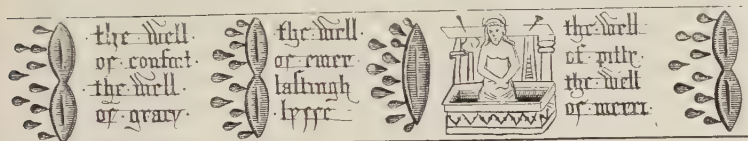 ·the·well·
of·confort·
·the·well·
of·gracy·
·the·well
of·ewer
lastingh
·lyffe
the·well
of·pitty·
the·well
of·merci·